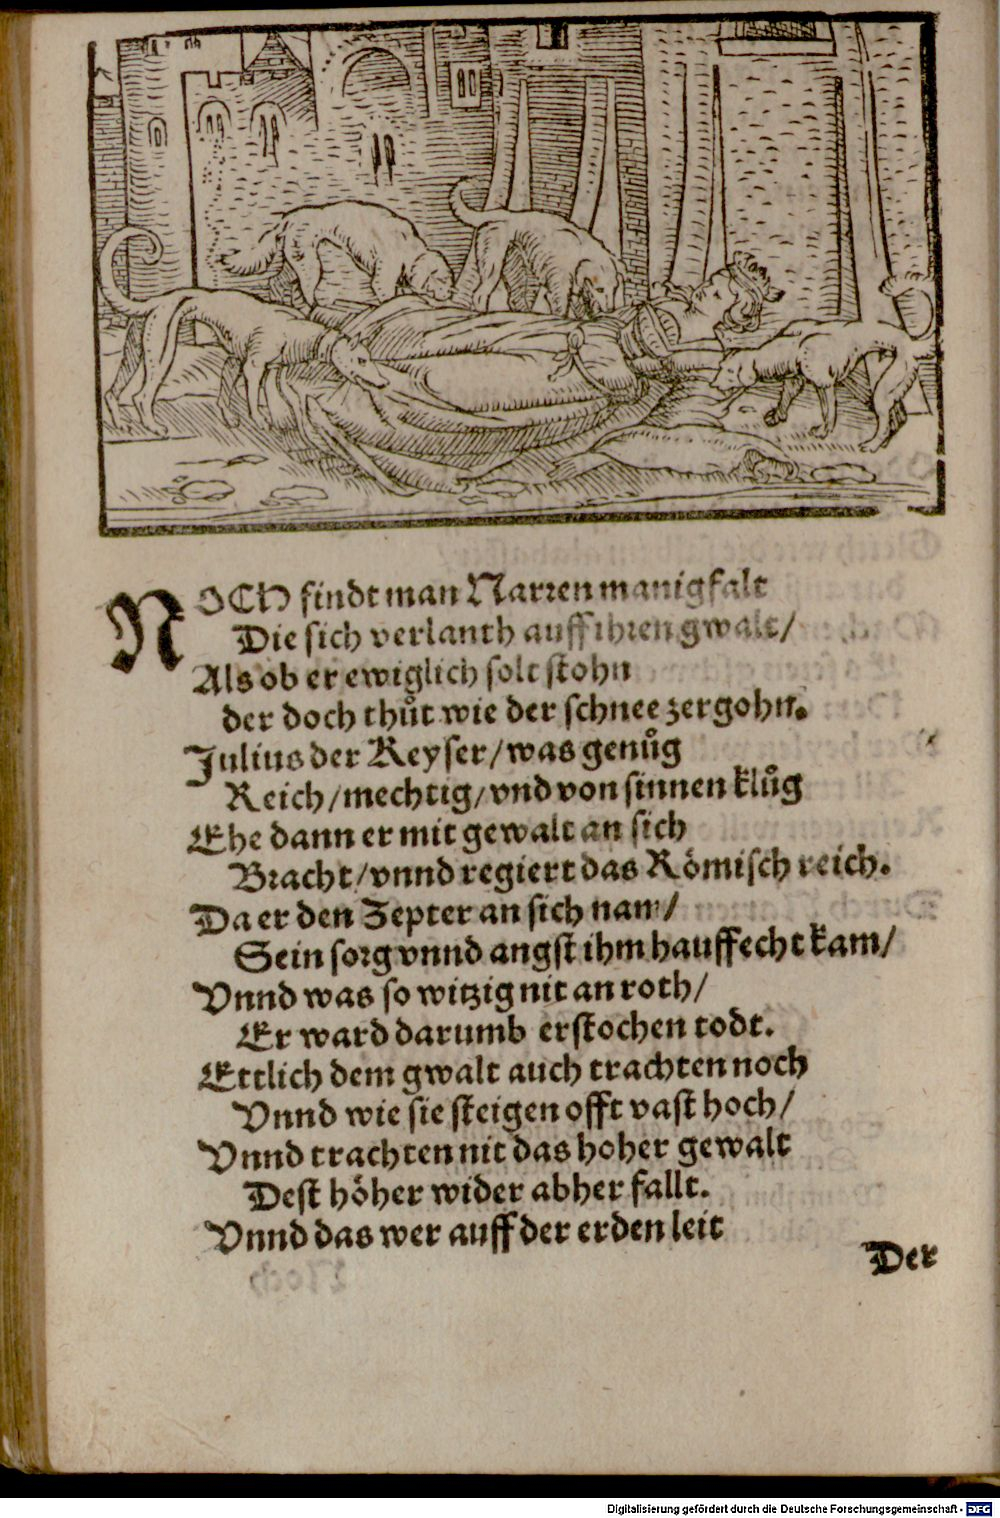 NOCH findt man Narren manigfalt
Die sich verlanth auff ihren gwalt/
Als ob er ewiglich solt stohn
der doch thůt wie der schnee zergohn.
Julius der Keyser/was genůg
Reich/mechtig/vnd von sinnen klůg
Ehe dann er mit gewalt an sich
Bracht/vnnd regiert das Römisch reich.
Da er den Zepter an sich nam/
Sein sorg vnnd angst ihm hauffecht kam/
Vnnd was so witzig nit an roth/
Er ward darumb erstochen todt.
Ettlich dem gwalt auch trachten noch
Vnnd wie sie steigen offt vast hoch/
Vnnd trachten nit das hoher gewalt
Dest höher wider abher fallt.
Vnnd das wer auff der erden leit
Der
Digitalisierung gefördert durch die Deutsche Forschungsgemeinschaft - DFG